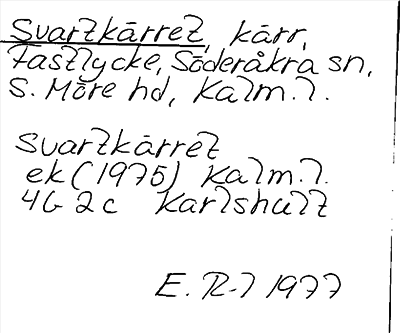 Svartkärret, kärr,
Fastlycke, Söderåkra sn,
S. Möre hd, Kalm. l.
Svartkärret
ek (1975) Kalm. l.
4G 2c Karlshult
E. R-l 1977